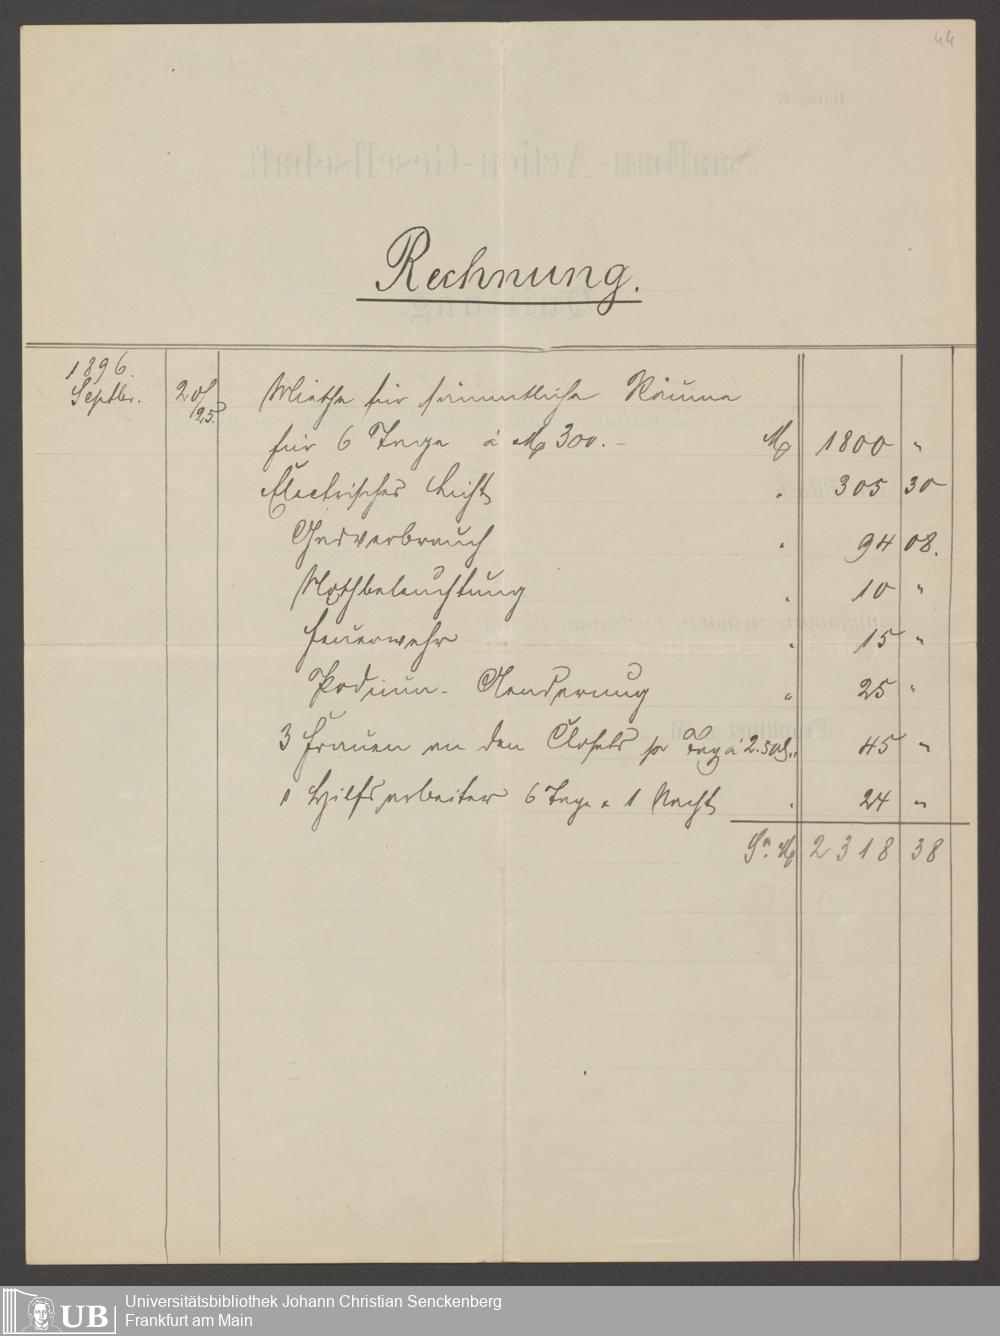 44
Rechnung.
1896.
Septbr. 20/25. Miethe für sämmtliche Räume
für 6 Tage à M 300.- M 1800 "
Electrisches Licht " 305 30
Gasverbrauch " 94 08.
Nothbeleuchtung " 10 "
Feuerwehr " 15 "
Podium-Aenderung " 25 "
3 Frauen an den Closets pr Tag à 2.50 " 45 "
1 Hilfsarbeiter 6 Tage + 1 Nacht " 24 "
Sa. M 2318 38
Saalbau-Actien-Gesellschaft.
Quittung.
UB
Universitätsbibliothek Johann Christian Senckenberg
Frankfurt am Main